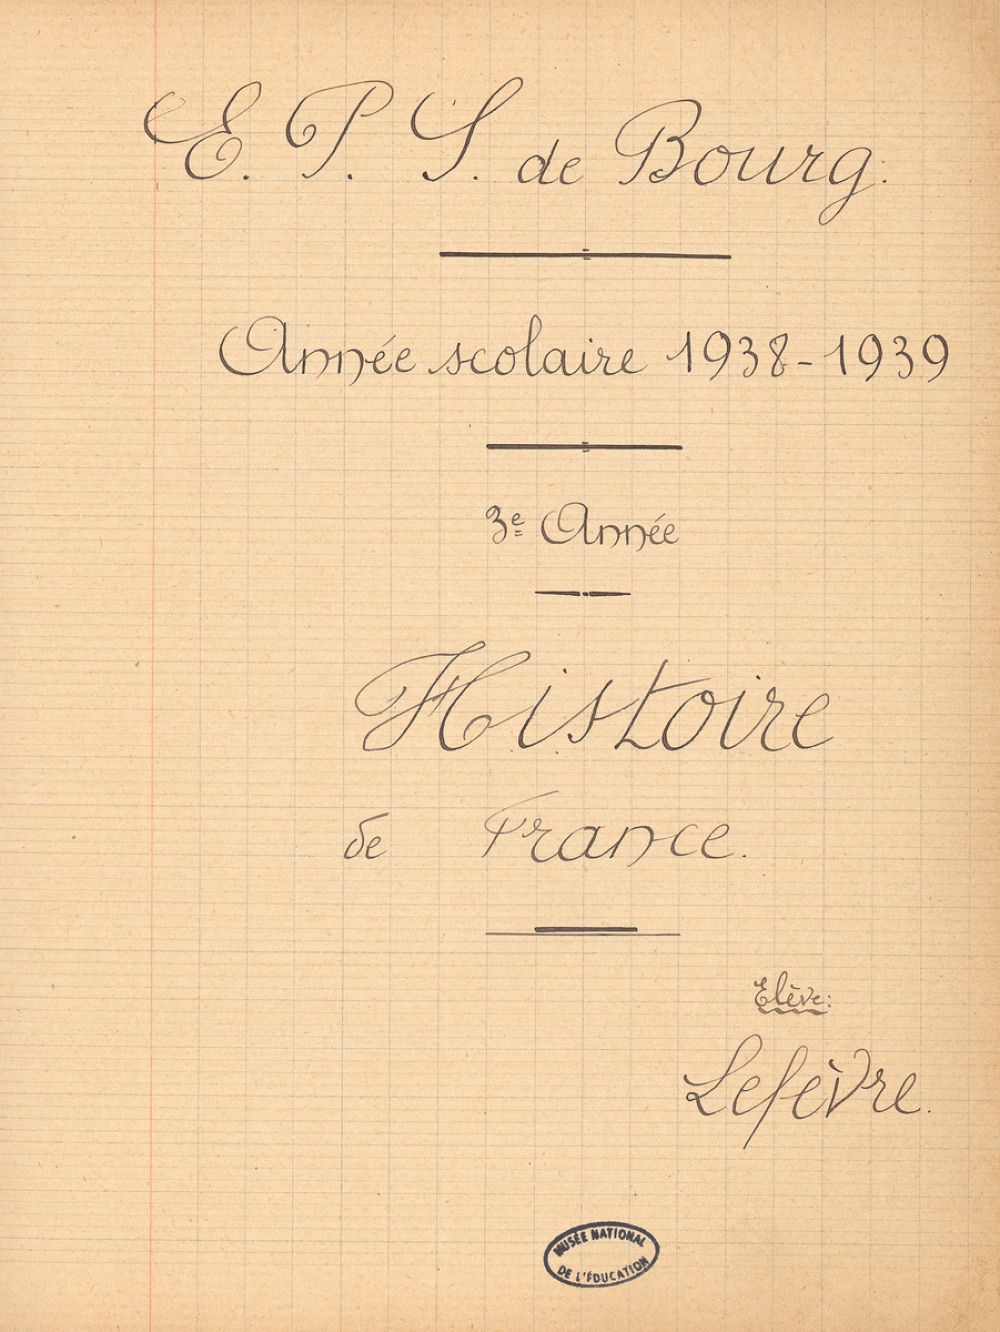 E. P. S. de Bourg.
Année scolaire 1938-1939
3e Année
Histoire
de France.
Elève:
Lefèvre.
MUSÉE NATIONAL
DE L'ÉDUCATION